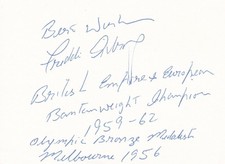 Best Wishes
Freddie Gilroy
British Empire & European
Bantamweight Champion
1959-62
Olympic Bronze Medalist
Melbourne 1956